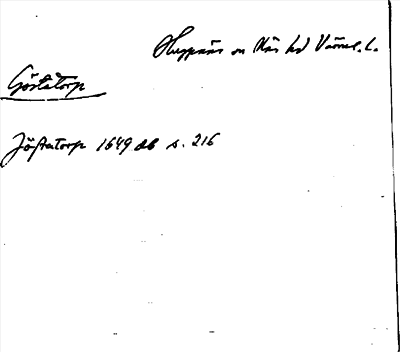 Huggnäs sn Näs hd Värml. l.
Göstatorp
Jöstatorp 1649 ab s. 216